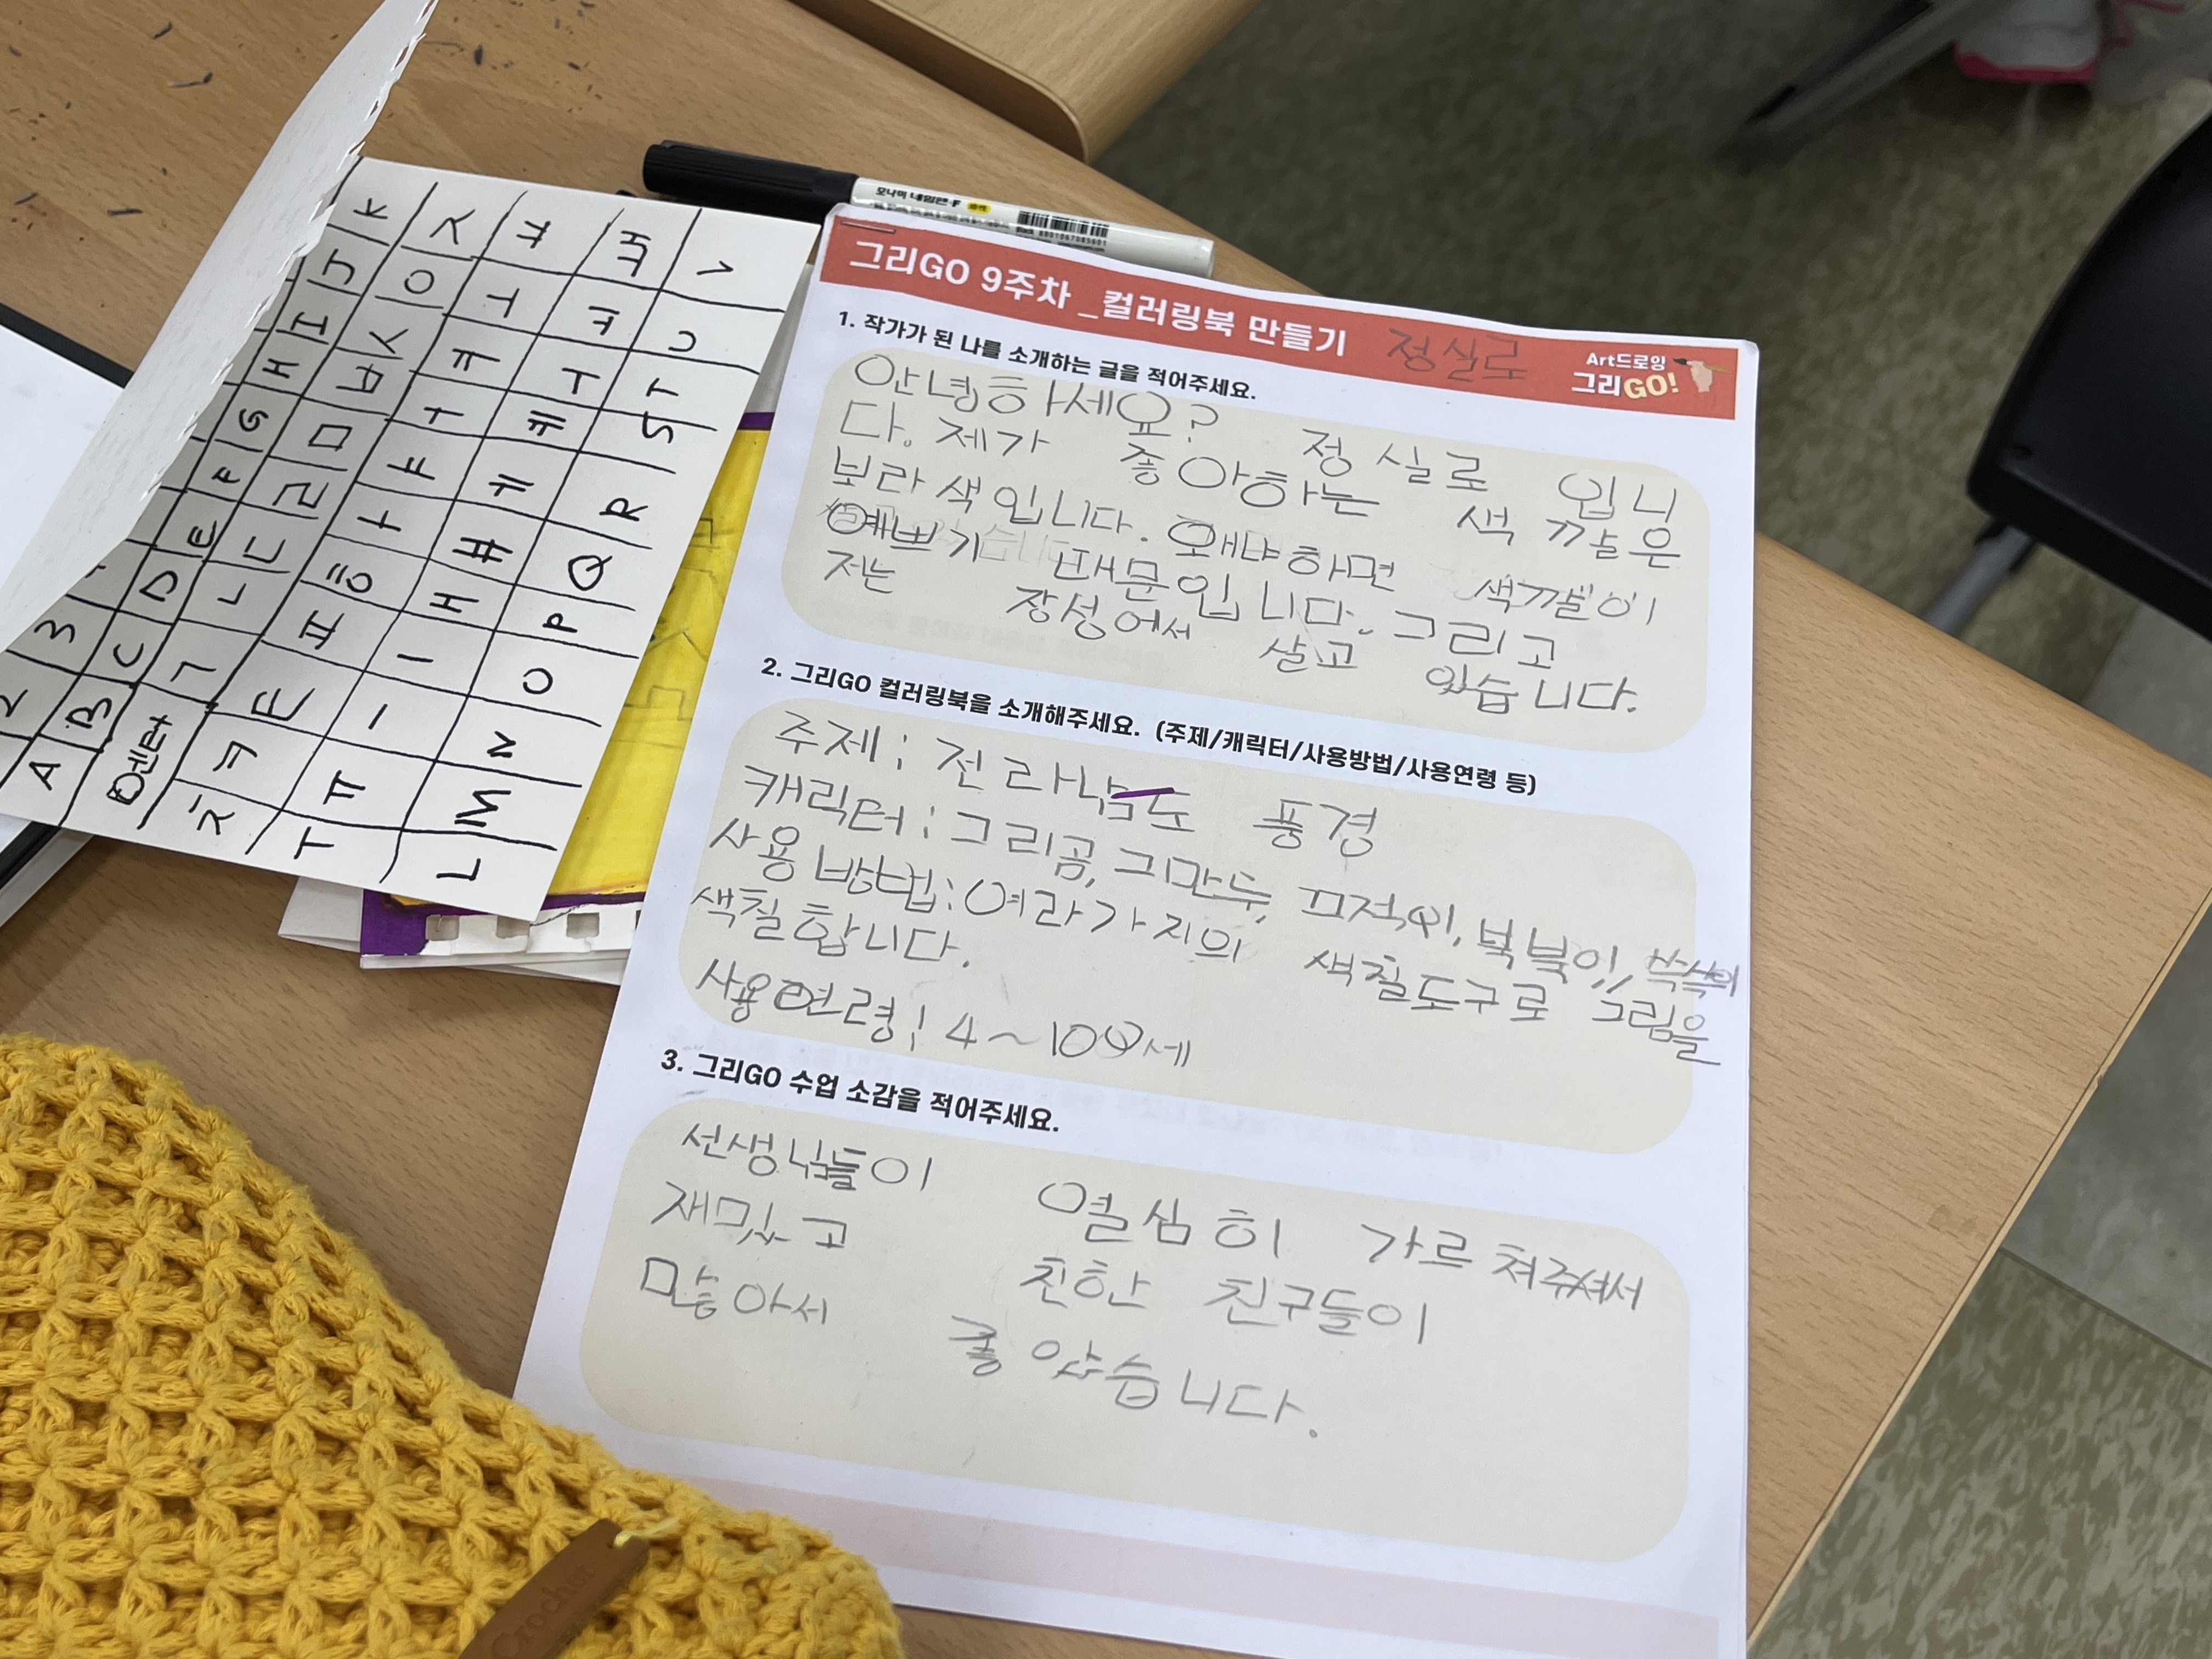 모나미 네임펜 F
그리GO 9주차 _컬러링북 만들기 정실로
Art드로잉
그리GO!
1. 작가가 된 나를 소개하는 글을 적어주세요.
안녕하세요? 정실로 입니
다. 제가 좋아하는 색깔은
보라색입니다. 왜냐하면 색깔이
예쁘기 때문입니다. 그리고
저는 장성에서 살고 있습니다.
2. 그리GO 컬러링북을 소개해주세요. (주제/캐릭터/사용방법/사용연령 등)
주제: 전라남도 풍경
캐릭터: 그리곰, 그만두, 끄적이, 북북이, 쓱쓱이
사용방법: 여라가지의 색칠도구로 그림을
색칠합니다.
사용연령: 4~100세
3. 그리GO 수업 소감을 적어주세요.
선생님들이 열심히 가르쳐주셔서
재밌고 친한 친구들이
많아서 좋았습니다.
2 3
A B C D E F G H I J K
엔터 ㄱ ㄴ ㄷ ㄹ ㅁ ㅂ ㅅ ㅇ ㅈ
ㅊ ㅋ ㅌ ㅍ ㅎ ㅏ ㅑ ㅓ ㅕ ㅗ ㅛ
ㅜ ㅠ ㅡ ㅣ ㅐ ㅒ ㅔ ㅖ
L M N O P Q R S T U V
Crochet